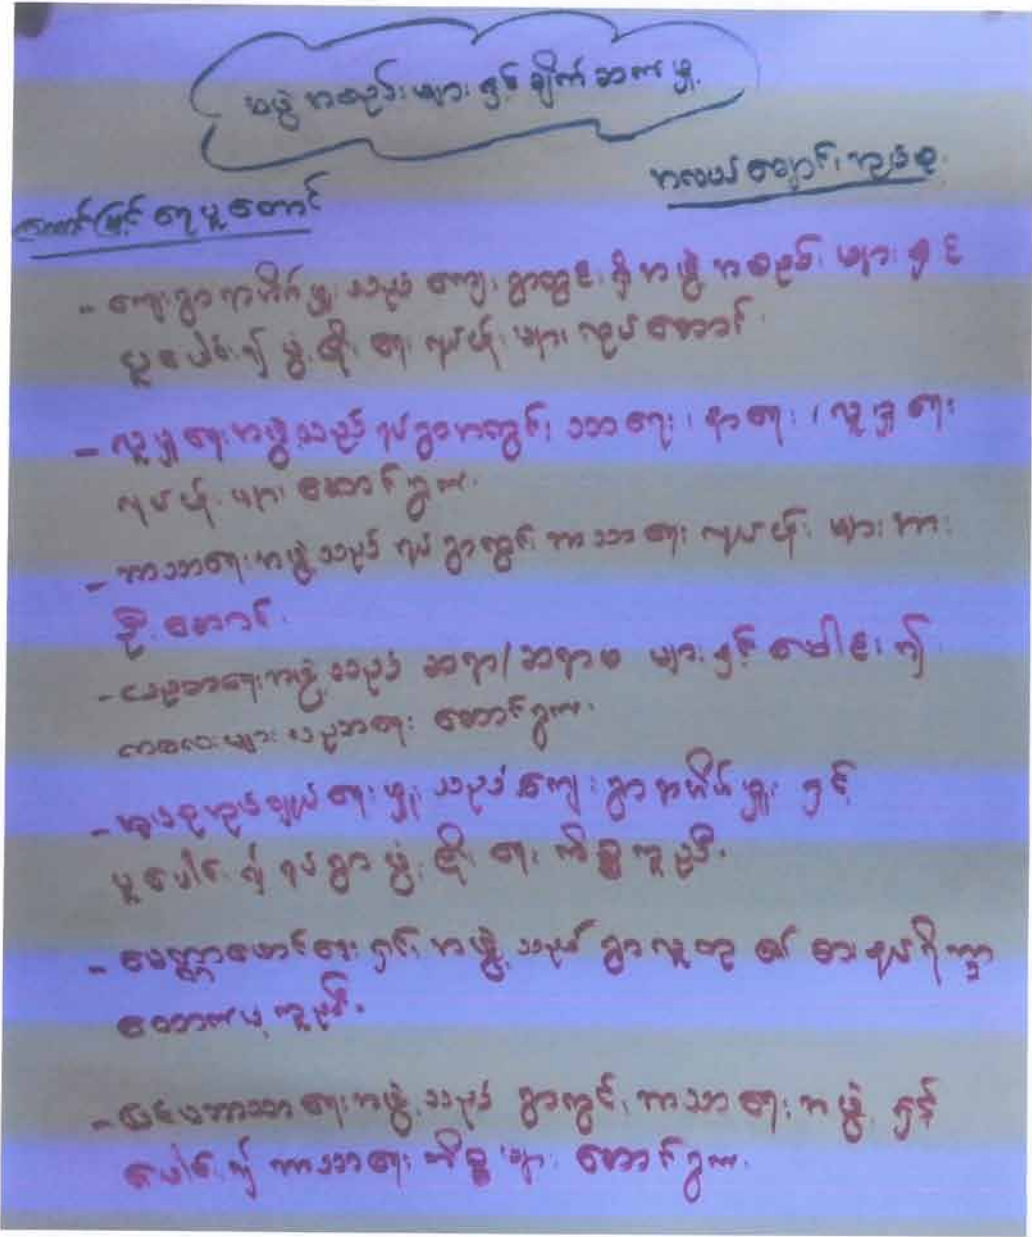 အဖွဲ့အစည်းများနှင့်ချိတ်ဆက်မှု
အလယ်ချောင်းအုပ်စု
တောင်မြင့် ရေပူတောင်
- ကျေးရွာအကြီးအမှူးသည် ကျေးရွာတွင်းရှိအဖွဲ့အစည်းများနှင့်
ပူးပေါင်း၍ဖွံ့ဖြိုးရေးလုပ်ငန်းများလုပ်ဆောင်
- လူမှုရေးအဖွဲ့သည် ရပ်ရွာအတွင်း သာရေး၊ နာရေး၊ လူမှုရေး
လုပ်ငန်းများဆောင်ရွက်
- ဘာသာရေးအဖွဲ့သည် ရပ်ရွာတွင်းဘာသာရေးလုပ်ငန်းများအား
ဦးဆောင်
- ပညာရေးအဖွဲ့သည် ဆရာ/ဆရာမများနှင့်ပေါင်း၍
ကလေးများပညာရေးဆောင်ရွက်
- အုပ်ချုပ်ရေးမှူးသည် ကျေးရွာ နှင့်
ပူးပေါင်း၍ရပ်ရွာဖွံ့ဖြိုးရေးကိစ္စကူညီ
- မေတ္တာ အဖွဲ့သည် ရွာလူထု စားနပ်ရိက္ခာ
ထောက်ပံ့ကူညီ
- ဘာသာရေးအဖွဲ့သည် ရွာတွင်းဘာသာရေးအဖွဲ့နှင့်
ပေါင်း၍ဘာသာရေးကိစ္စများဆောင်ရွက်